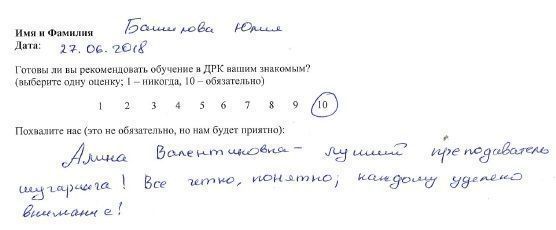 Имя и Фамилия Башилова Юлия
Дата: 27.06.2018
Готовы ли вы рекомендовать обучение в ДРК вашим знакомым?
(выберите одну оценку; 1 – никогда, 10 – обязательно)
1 2 3 4 5 6 7 8 9 10
Похвалите нас (это не обязательно, но нам будет приятно):
Алина Валентиновна – лучший преподаватель
шугаринга! Все четко, понятно; каждому уделено
внимание!